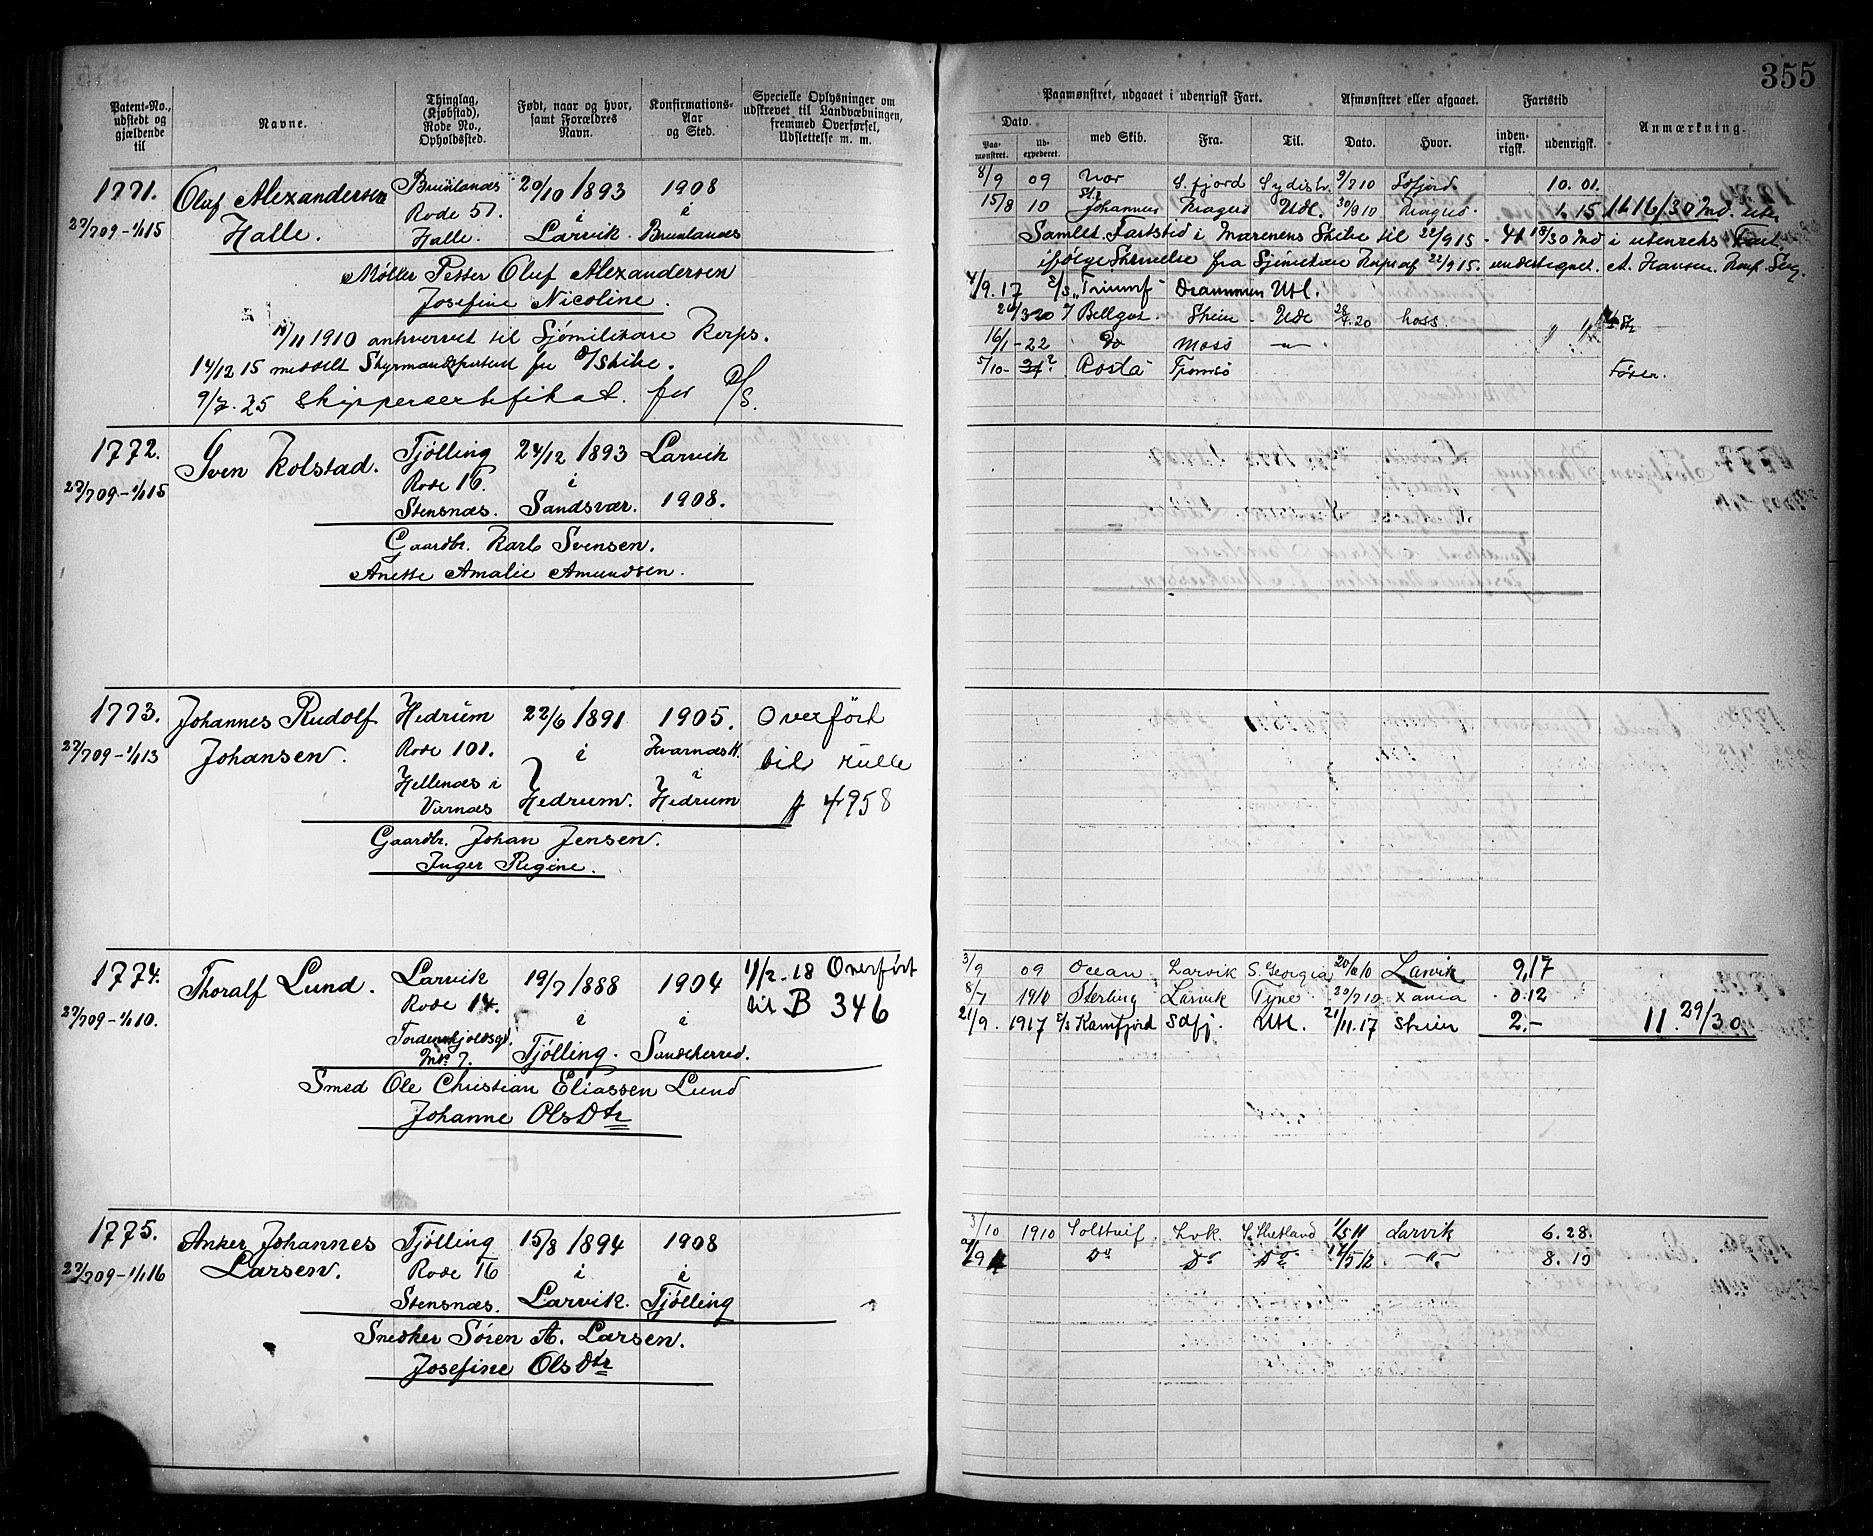 355
Patent-No., udstedt og gjældende til
Navne.
Thinglag, (Kjøbstad), Rode No., Opholdssted.
Født, naar og hvor, samt Forældres Navn.
Konfirmations-Aar og Sted.
Specielle Oplysninger om udskrevet til Landværbningen, fremmed Overførsel, Udslettelse m. m.
Paamønstret, udgaaet i udenrigsk Fart.
Dato.
Paamønstret.
Udexpederet.
med Skib.
Fra.
Til.
Afmønstret eller afgaaet.
Dato.
Hvor.
Fartstid
indenrigsk.
udenrigsk.
Anmærkning.
1771.
Oluf Alexandersen
Halle.
Brunlanæs
Rode 51.
Halle.
20/10 1893
i
Larvik.
1908
i
Brunlanæs
22/7 09 - 1/1 15
Møller Petter Oluf Alexandersen
Josefine Nicoline.
11 1910 anhvervet til Sjømilitære Korps.
14/12 15 meddelt Styrmandspatent for D/Skibe.
9/7. 25 Skippercertifikat for D/S.
8/9 09 Nor S.fjord Sydishv. 9/7 10 S.fjord 10. 01.
15/8 10 Johannes Kragerø Udl. 30/9 10 Kragerø. 1. 15
Samlet Fartstid i Marinens Skibe til 22/9 15 - 41 13/30 Md i utenriks Fart
ifølge Skrivelse fra Sjømilitære Korps af 22/9 15. undertegnet A. Hansen
4/9. 17 D/S "Triumf" Drammen Utl.
Skien - Utl
16/1 - 22 Do Moss
5/10 - Rosta Tromsø
Fører.
1772.
Sven Kolstad.
Tjølling
Rode 16.
Stensnæs.
24/12 1893
i
Sandsvær.
Larvik
1908.
22/7 09 - 1/1 15
Gaardbr. Karl Svensen.
Anette Amalie Amundsen.
1773.
Johannes Rudolf
Johansen.
Hedrum
Rode 101.
Hellenæs i
Varnæs
22/6 1891
i
Hedrum.
1905.
Kvarnæs K.
i
Hedrum
Overført
til rulle
A 4958
22/7 09 - 1/1 13
Gaardbr. Johan Jensen.
Inger Regine.
1774.
Thoralf Lund.
Larvik
Rode 14.
Tordenskjoldsgd.
No 7.
19/7 1888
i
Tjølling.
1904
i
Sandeherred.
11/2 - 18 Overført
til B 346
22/7 09 - 1/1 10.
Smed Ole Christian Eliassen Lund
Johanne Olsdtr
3/9 09 Ocean Larvik S. Georgia Larvik 9.17
8/7 1910 Sterling Larvik Tyne 29/7 10 Xania 0.12
21/9. 1917 D/S Ramfjord Sdfj. Utl. 21/11. 17 Skien 2.-
11. 29/30
1775.
Anker Johannes
Larsen.
Tjølling
Rode 16
Stensnæs.
15/8 1894
i
Larvik.
1908
i
Tjølling
22/7 09 - 1/1 16
Snedker Søren A. Larsen.
Josefine Olsdtr
3/10 1910 Solstreif Lvk. S. Shetland 1/5 11 Larvik 6. 28.
Do Do Do 8. 19